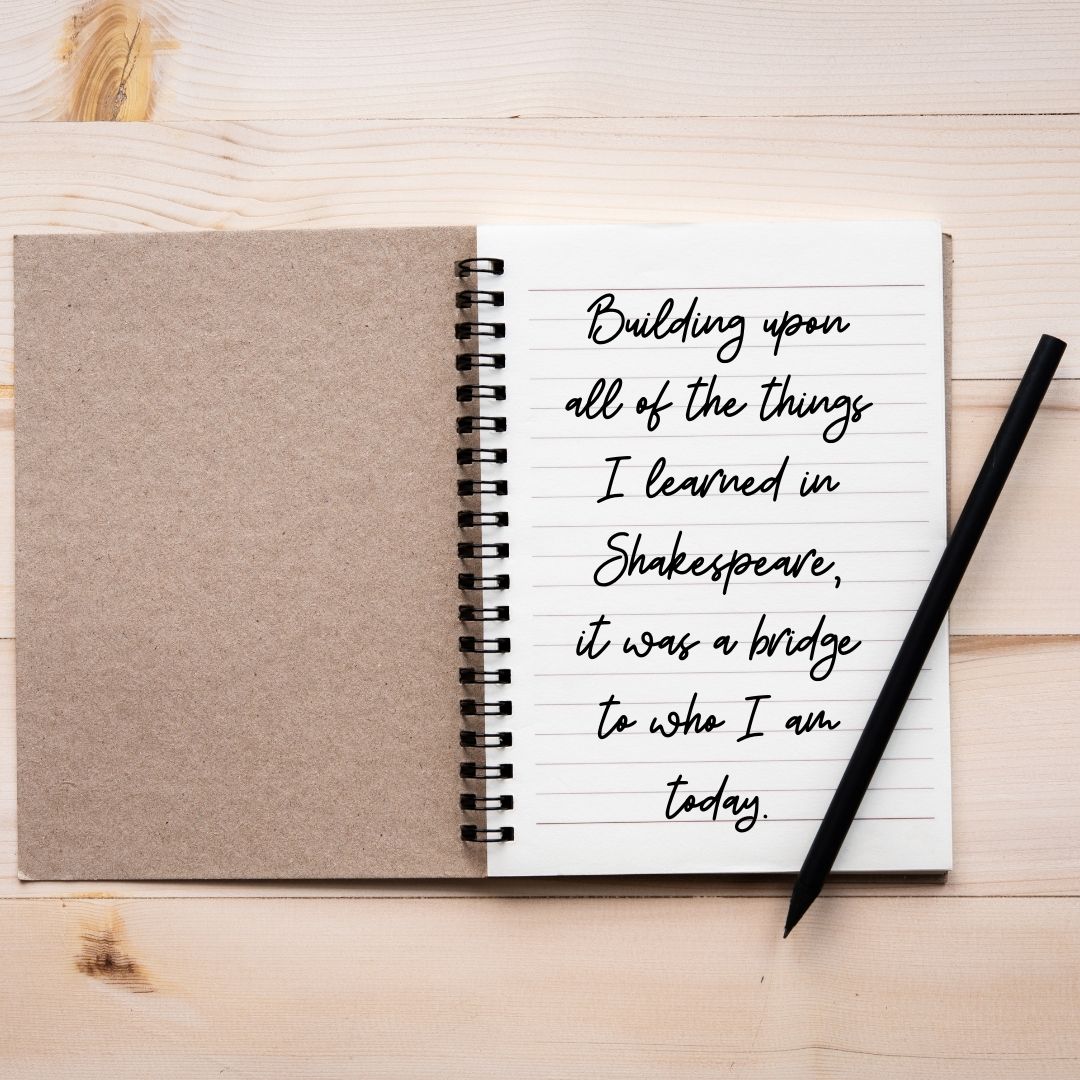 Building upon
all of the things
I learned in
Shakespeare,
it was a bridge
to who I am
today.